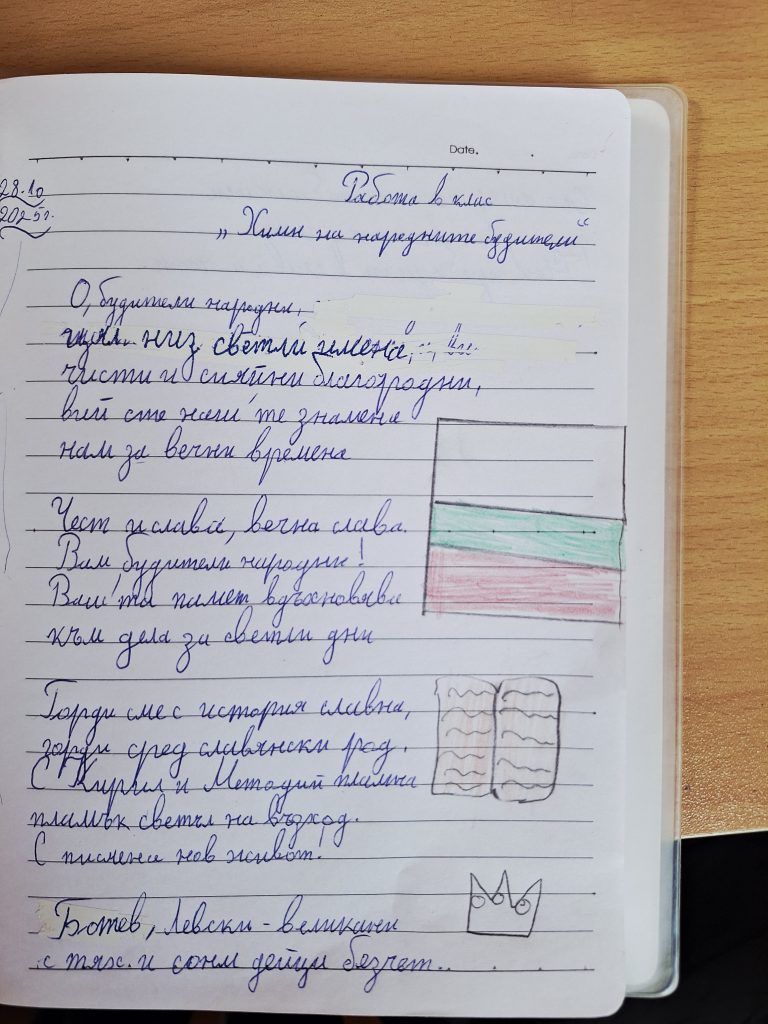 Date.
28.10
2025г.
Работа в клас
„Химн на народните будители“
О, будители народни,
цял низ светли имена,
чисти и сияйни благородни,
вий сте наш'те знамена
нам за вечни времена
Чест и слава, вечна слава
Вам будители народни!
Ваш'та памет вдъхновява
към дела за светли дни
Горди сме с история славна,
горди сред славянски род.
С Кирил и Методий пламна
пламък светъл на възход.
С писмена нов живот!
Ботев, Левски - великани
с тях. и сонм дейци безчет..